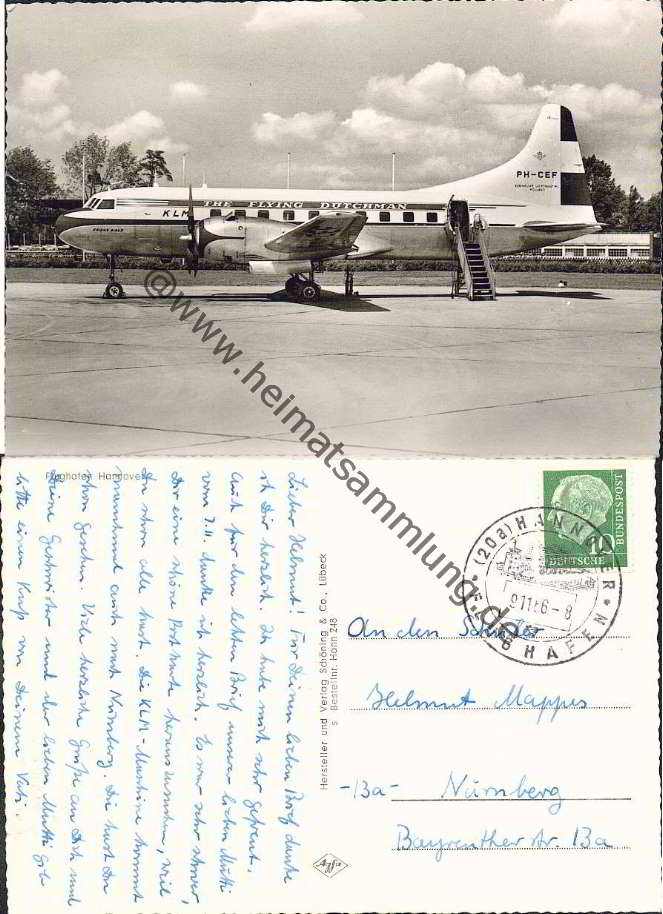 PH-CEF
KLM
THE FLYING DUTCHMAN
@www.heimatsammlung.de
Flughafen Hannover
Lieber Helmut! Für Deinen lieben Brief danke
ich Dir herzlich. Ich habe mich sehr gefreut.
Auch für den lieben Brief unserer lieben Mutti
vom 7.11. danke ich herzlich. Es war sehr schwer,
Dir eine schöne Postkarte herauszusuchen, weil
Du schon alle hast. Die KLM-Maschine kommt
manchmal auch nach Nürnberg. Die hast Du
schon gesehen. Viele herzliche Grüße an Dich und
Deine Geschwister und der lieben Mutti gib
bitte einen Kuß von Deinem Vati.
Hersteller und Verlag Schöning & Co., Lübeck
s Bestellnr. Hann 248
Agfa
DEUTSCHE BUNDESPOST
10
(20a) HANNOVER
FLUGHAFEN
An den Schüler
Helmut Mappes
-13a- Nürnberg
Bayreuther Str. 13a